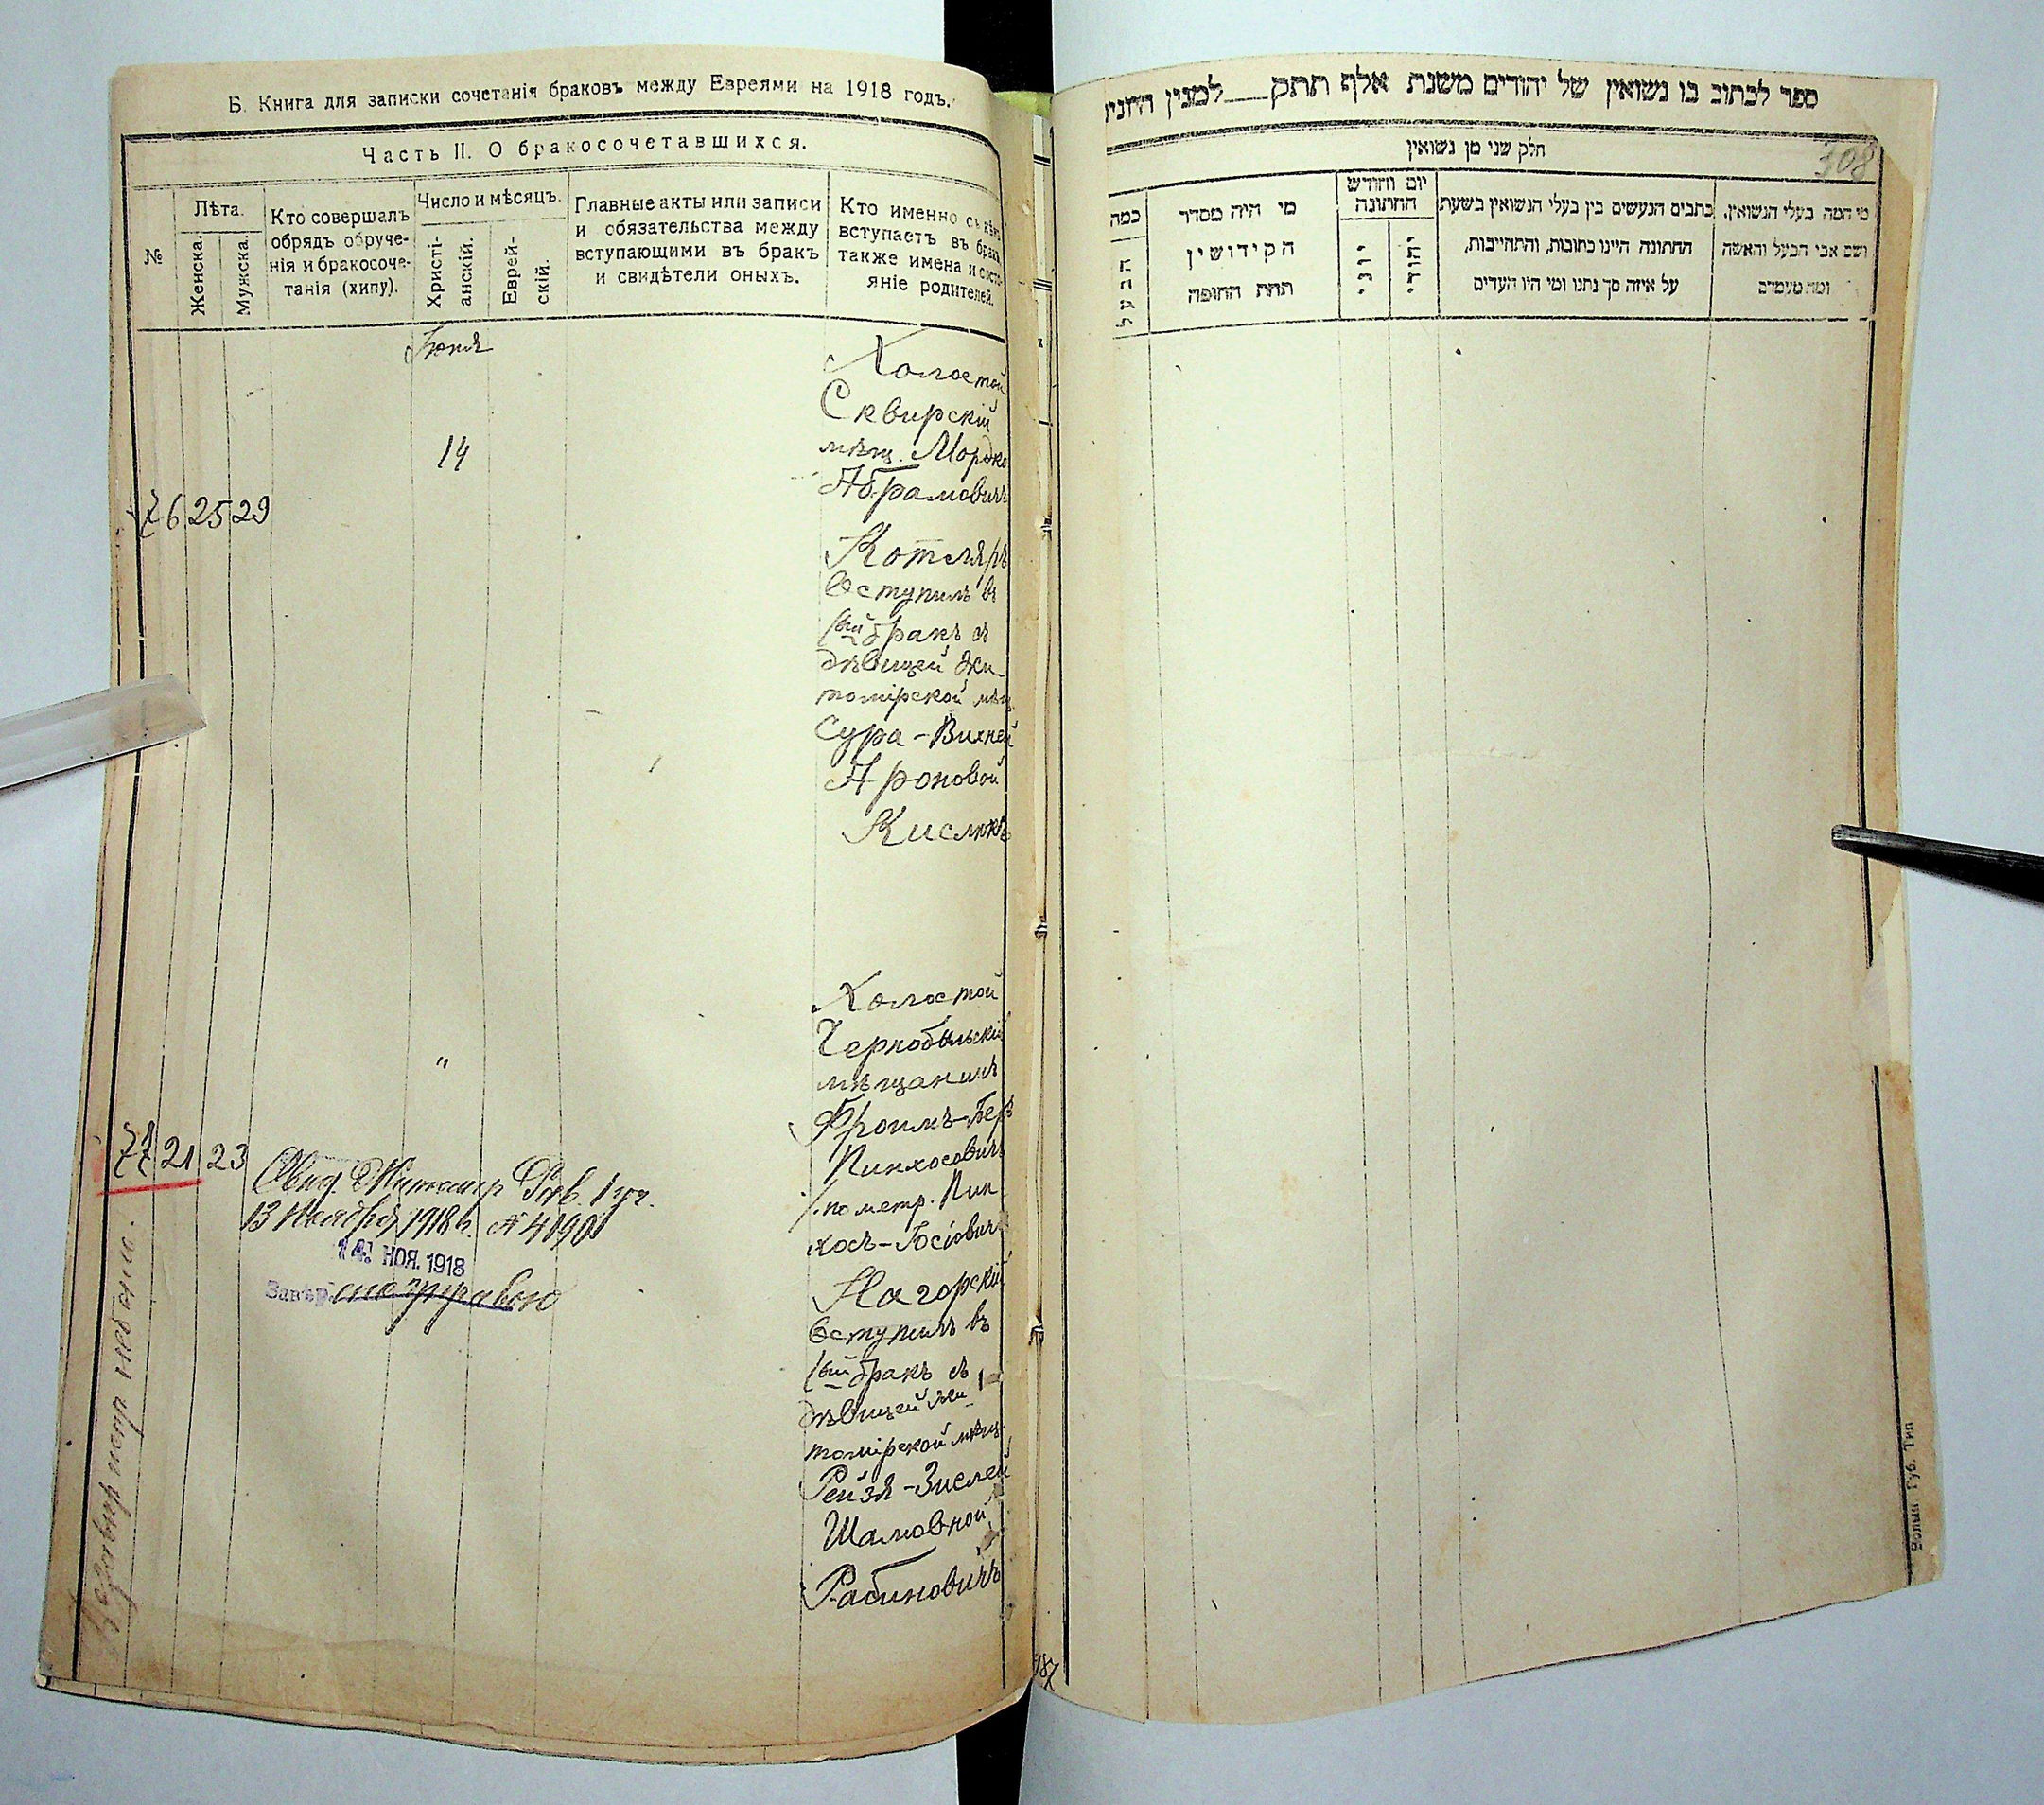 Б. Книга для записки сочетанія браковъ между Евреями на 1918 годъ.
Часть II. О бракосочетавшихся.
№
Лѣта.
Женска.
Мужска.
Кто совершалъ
обрядъ обруче-
нія и бракосоче-
танія (хипу).
Число и мѣсяцъ.
Христі-
анскій.
Еврей-
скій.
Главные акты или записи
и обязательства между
вступающими въ бракъ
и свидѣтели оныхъ.
Кто именно съ кѣмъ
вступаетъ въ бракъ
также имена и состо-
яніе родителей.
Іюня
76 25 29
14
Холостой
Сквирскій
мѣщ. Мордко
Абрамовичъ
Котляръ
вступилъ въ
1ый бракъ съ
дѣвицей Жи-
томірской мѣщ.
Сура-Вихней
Ароновой
Кислюкъ
77 21 23
"
Холостой
Чернобыльскій
мѣщанинъ
Фроимъ-Беръ
Пинхосовичъ
по метр. Пин
хосъ-Іосіовичъ
Нагорскій
вступилъ въ
1ый бракъ съ
дѣвицей Жи
томірской мѣщ.
Рейзя-Зислей
Шамовной
Рабиновичъ
13 Ноября 1918 г. №
14 НОЯ. 1918
187
ספר לכתוב בו נשואין של יהודים משנת אלף תתק למנין הזונין
חלק שני מן נשואין
308
כמה
הבעל
מי היה מסדר
הקידושין
תחת החופה
יום וחודש
החתונה
יוני
יהודי
כתבים הנעשים בין בעלי הנשואין בשעת
החתונה היינו כתובות, והתחייבות,
על איזה סך נתנו ומי היו העדים
מי המה בעלי הנשואין.
ושם אבי הבעל והאשה
ומה מעמדם
Волын Губ. Тип